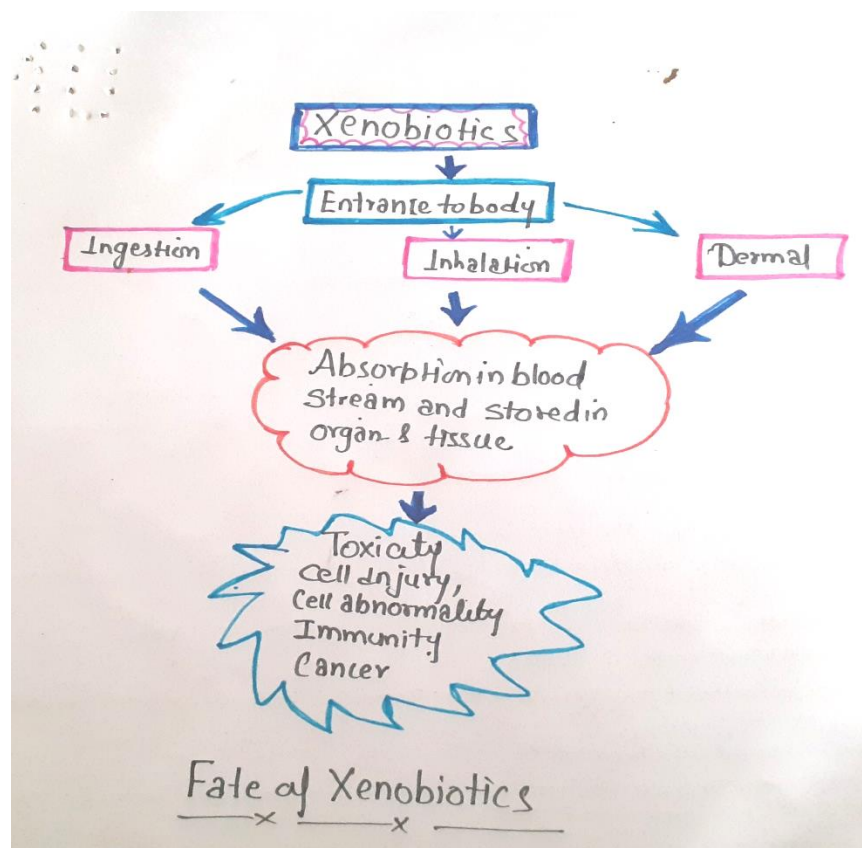 Xenobiotics
Entrance to body
Ingestion
Inhalation
Dermal
Absorption in blood
stream and stored in
organ & tissue
Toxicity
Cell Injury,
Cell abnormality
Immunity
Cancer
Fate of Xenobiotics